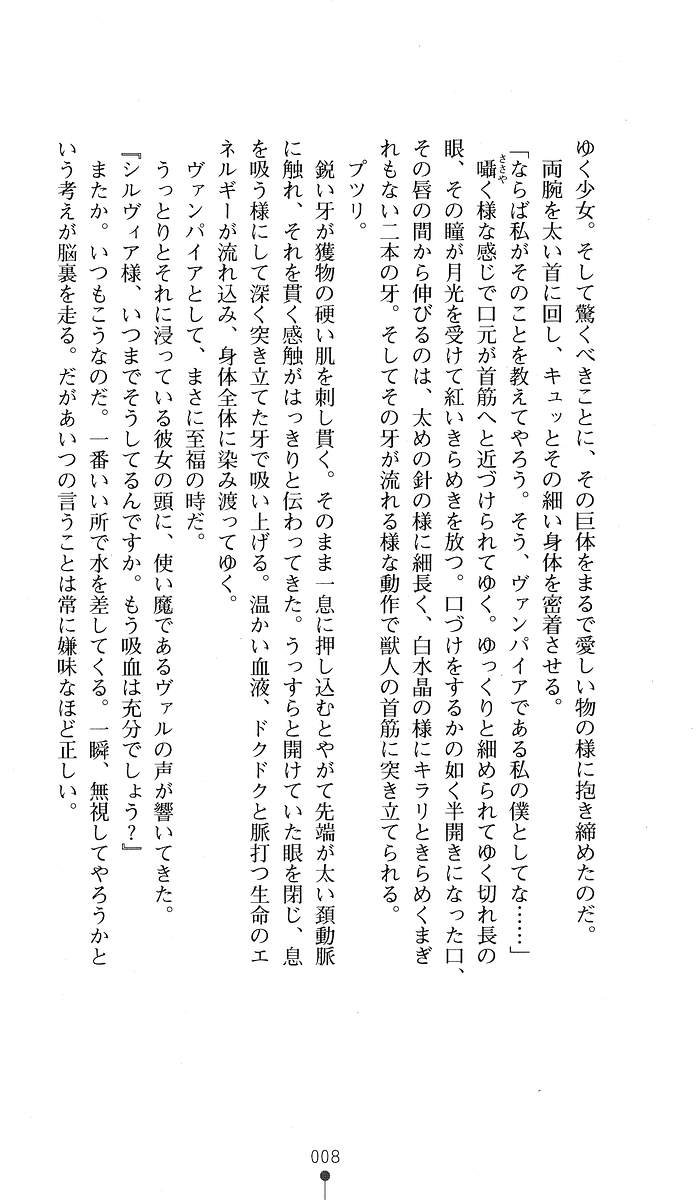 ゆく少女。そして驚くべきことに、その巨体をまるで愛しい物の様に抱き締めたのだ。
両腕を太い首に回し、キュッとその細い身体を密着させる。
「ならば私がそのことを教えてやろう。そう、ヴァンパイアである私の僕としてな……」
囁く様な感じで口元が首筋へと近づけられてゆく。ゆっくりと細められてゆく切れ長の
ささや
眼、その瞳が月光を受けて紅いきらめきを放つ。口づけをするかの如く半開きになった口、
その唇の間から伸びるのは、太めの針の様に細長く、白水晶の様にキラリときらめくまぎ
れもない二本の牙。そしてその牙が流れる様な動作で獣人の首筋に突き立てられる。
プツリ。
鋭い牙が獲物の硬い肌を刺し貫く。そのまま一息に押し込むとやがて先端が太い頚動脈
に触れ、それを貫く感触がはっきりと伝わってきた。うっすらと開けていた眼を閉じ、息
を吸う様にして深く突き立てた牙で吸い上げる。温かい血液、ドクドクと脈打つ生命のエ
ネルギーが流れ込み、身体全体に染み渡ってゆく。
ヴァンパイアとして、まさに至福の時だ。
うっとりとそれに浸っている彼女の頭に、使い魔であるヴァルの声が響いてきた。
『シルヴィア様、いつまでそうしてるんですか。もう吸血は充分でしょう？』
またか。いつもこうなのだ。一番いい所で水を差してくる。一瞬、無視してやろうかと
いう考えが脳裏を走る。だがあいつの言うことは常に嫌味なほど正しい。
008